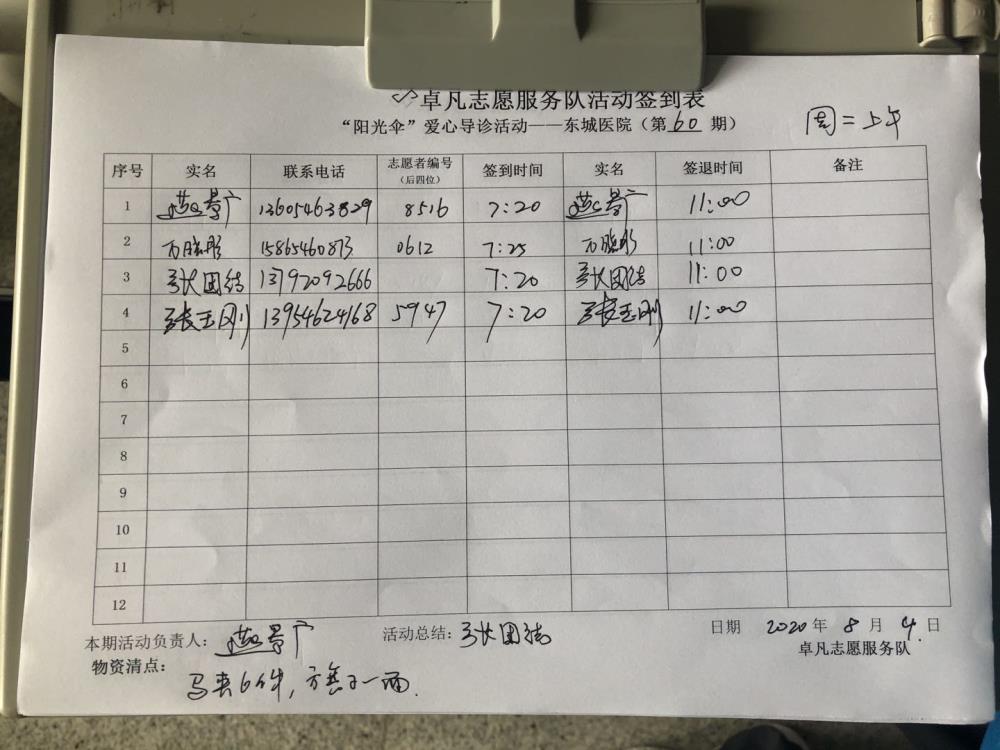 卓凡志愿服务队活动签到表
“阳光伞”爱心导诊活动——东城医院（第60期）
周二上午
序号 实名 联系电话 志愿者编号（后四位） 签到时间 实名 签退时间 备注
1 燕景广 13605463829 8516 7:20 燕景广 11:00
2 15865460873 0612 7:25 11:00
3 张团结 13792092666 7:20 张团结 11:00
4 张玉刚 13954624168 5947 7:20 张玉刚 11:00
5
6
7
8
9
10
11
12
本期活动负责人：燕景广 活动总结：张团结 日期 2020年8月4日
物资清点： 卓凡志愿服务队
马夹6件，旗子一面.